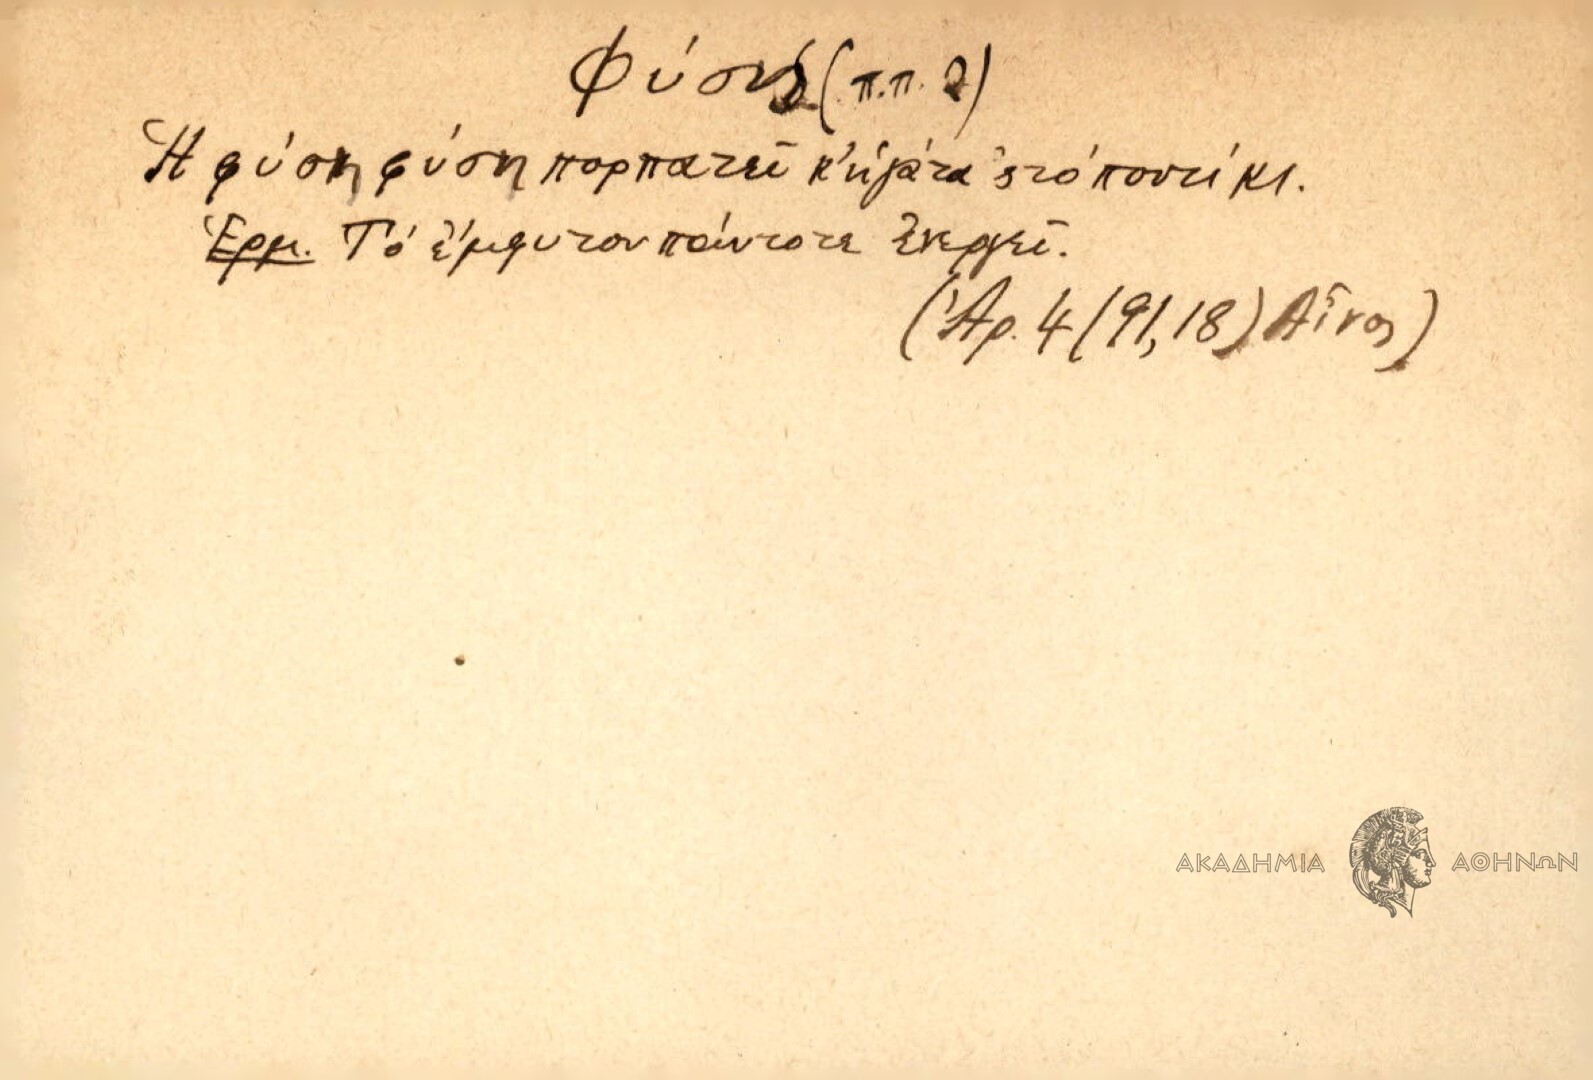 Φύσις (π.π. 2)
Ἡ φύση φύση πορπατεῖ κ' ἡ γάτα 'ςτό ποντίκι.
Ἑρμ. Τό ἔμφυτον πάντοτε ἐνεργεῖ.
(Ἀρ. 4 (91, 18) Αἶνος)
ΑΚΑΔΗΜΙΑ ΑΘΗΝΩΝ